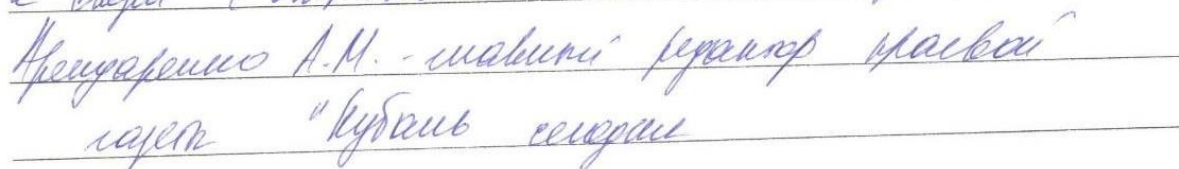 Арендаренко А.М. - главный редактор краевой
газеты "Кубань сегодня